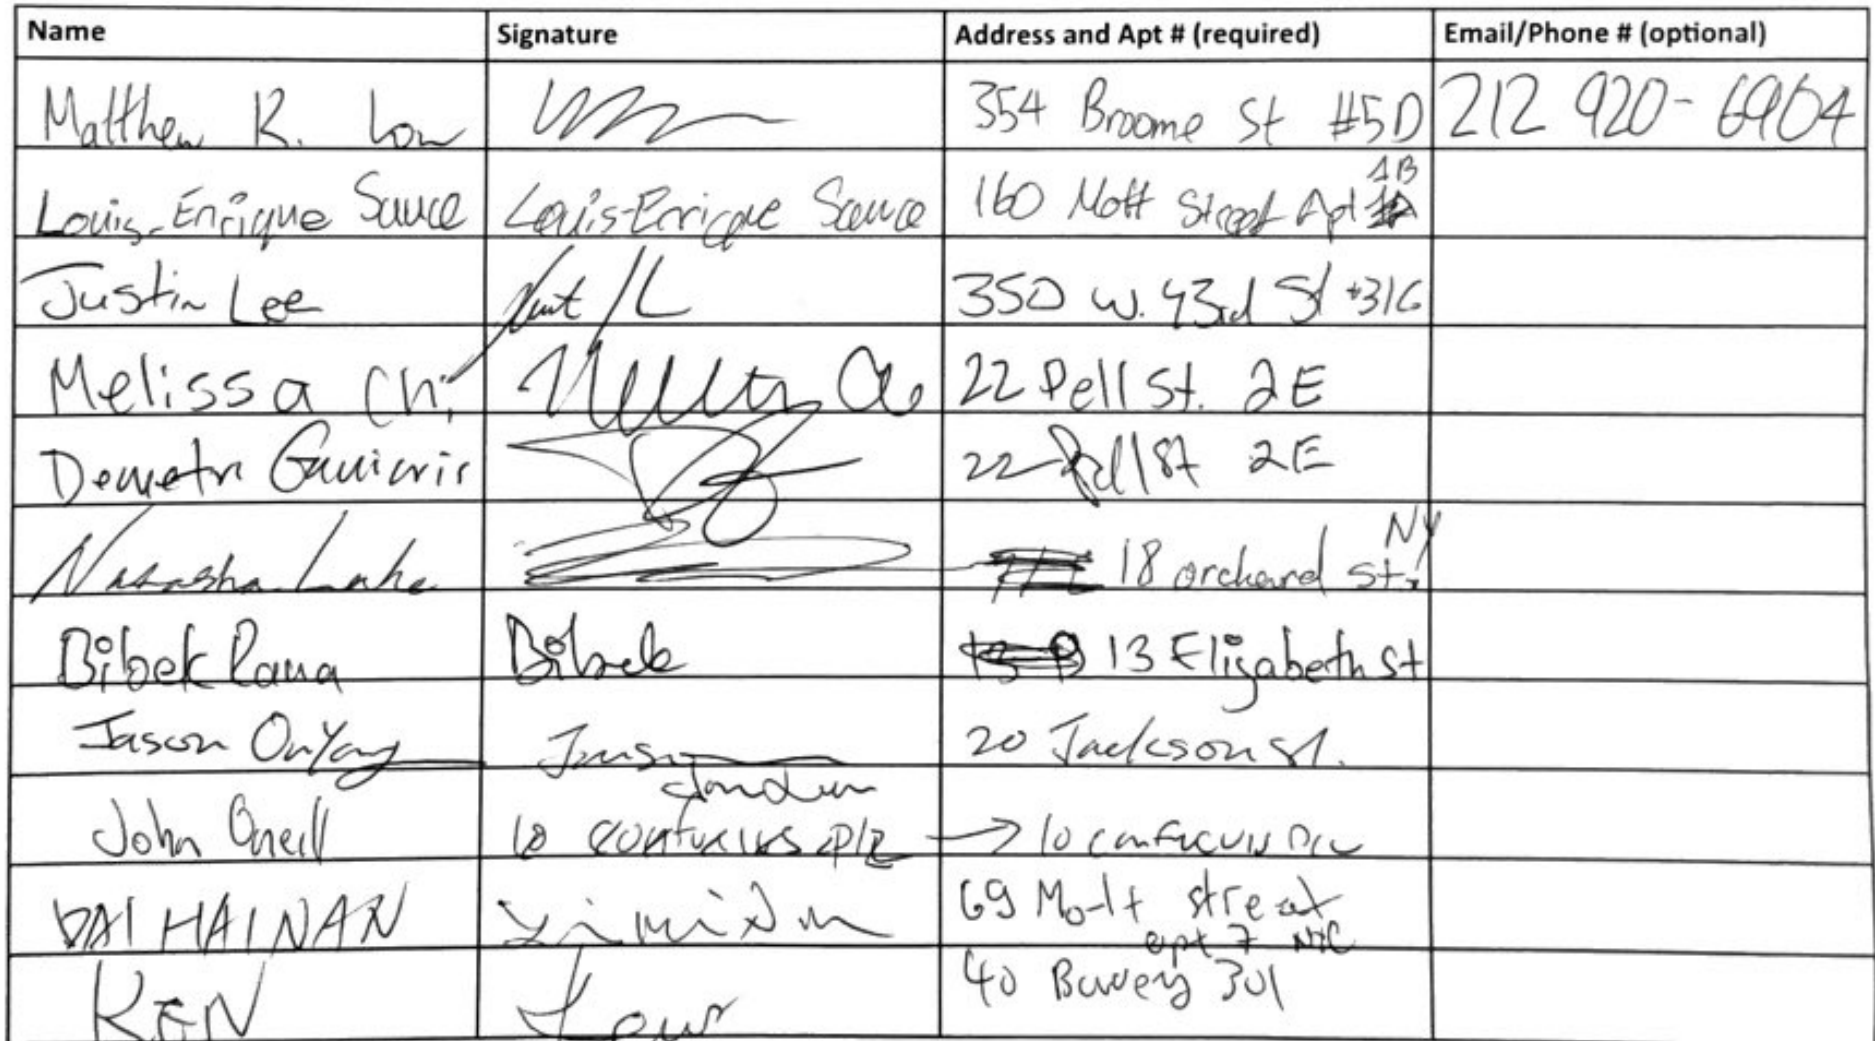 Name Signature Address and Apt # (required) Email/Phone # (optional)
Matthew R. Low 354 Broome St #5D 212 920-6904
Louis-Enrique Sauce Louis-Enrique Sauce 160 Mott Street Apt 1B
Justin Lee 350 W. 43rd St #31G
Melissa Chi 22 Pell St. 2E
22 Pell St 2E
Natasha Lake 18 orchard st. NY
Bibek Rana Bibek 13 Elizabeth St
Jason OuYang 20 Jackson St.
John Oneill 10 confucius plz → 10 confucius
DAI HAINAN 69 Mott street
apt 7 NYC
KEN 40 Bowery 301